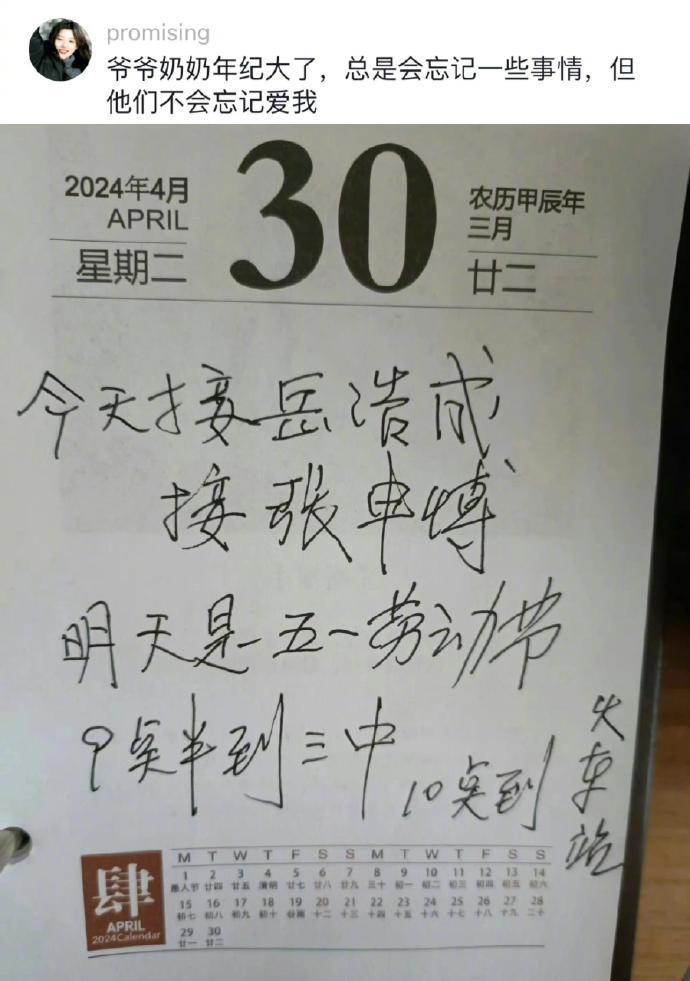 promising
爷爷奶奶年纪大了，总是会忘记一些事情，但
他们不会忘记爱我
2024年4月
APRIL
星期二
30
农历甲辰年
三月
廿二
今天接岳浩成
接张申博
明天是五一劳动节
9点半到三中
10点到
火车站
肆
APRIL
2024Calendar
M T W T F S S M T W T F S S
1 2 3 4 5 6 7 8 9 10 11 12 13 14
愚人节 廿四 廿五 清明 廿七 廿八 廿九 三十 初一 初二 初三 初四 初五 初六
15 16 17 18 19 20 21 22 23 24 25 26 27 28
初七 初八 初九 初十 谷雨 十二 十三 十四 十五 十六 十七 十八 十九 二十
29 30
廿一 廿二